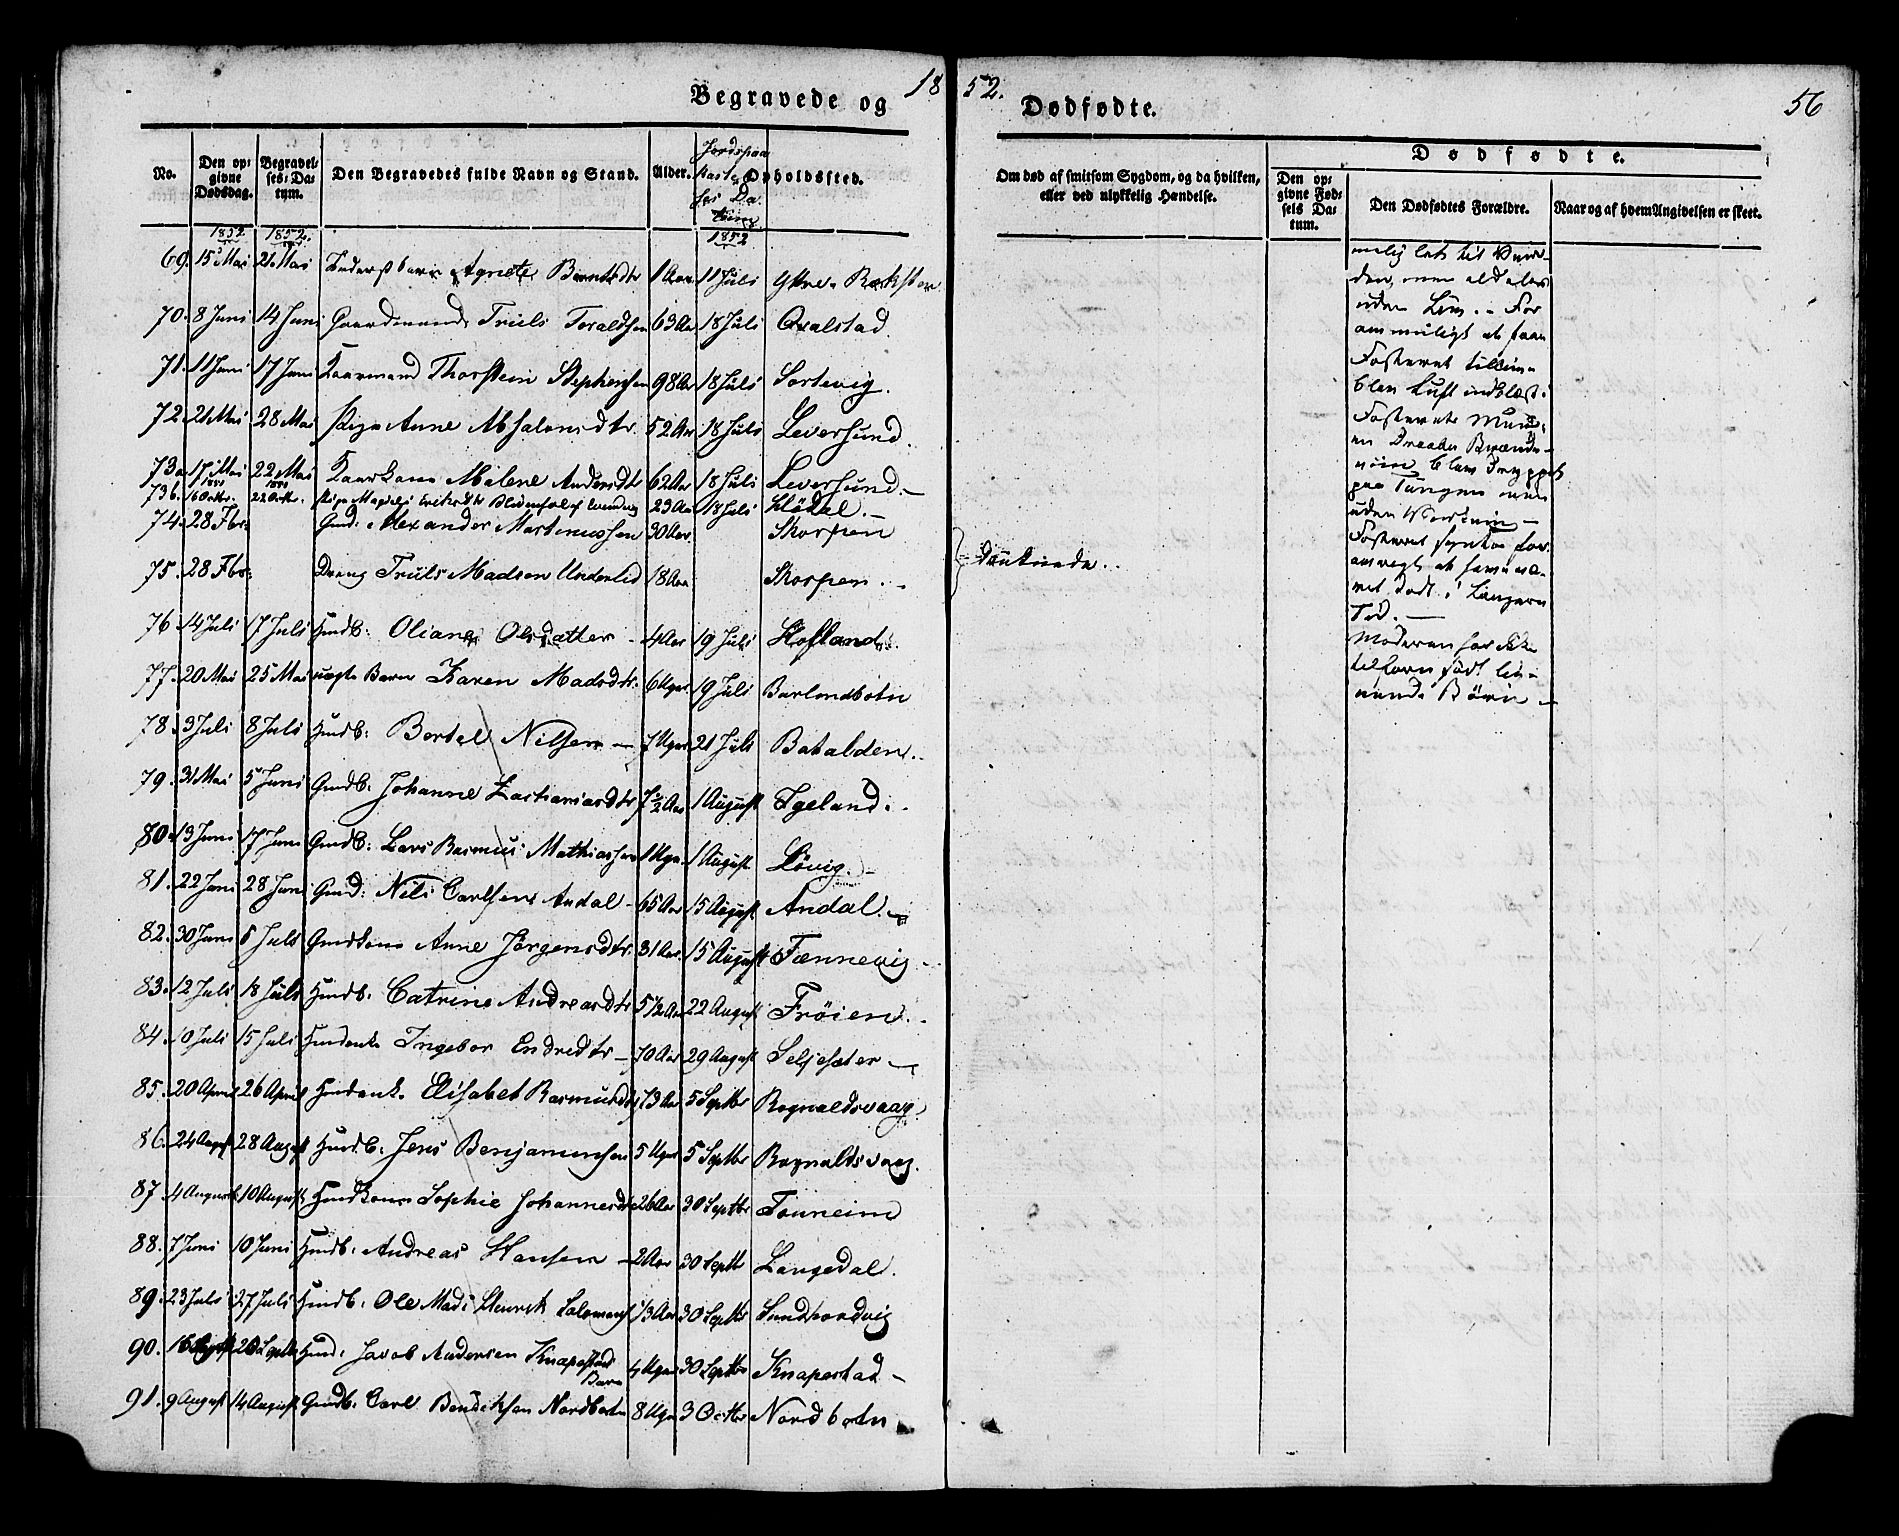 Begravede og
18
52.
Dødfødte.
56
No.
Den opgivne Dødsdag.
Begravelses-Datum.
Den Begravedes fulde Navn og Stand.
Alder.
Jordspaakastelses Datum
Opholdssted.
Om død af smitsom Sygdom, og da hvilken, eller ved ulykkelig Hændelse.
Dødfødte.
Den opgivne Fødsels Datum.
Den Dødfødtes Forældre.
Naar og af hvem Angivelsen er skeet.
1852 1852. 1852
69. 15 Mai 21 Mai barn Agnete Berntsdtr 1 Aar 11 Juli Yttre
70. 8 Juni 14 Juni Gaardmand Truls Toraldsen 63 Aar 18 Juli Qvalstad
71. 11 Juni 17 Juni Kaarmand Thorstein Stephensen 98 Aar 18 Juli Sortevig.
72. 21 Mai 28 Mai Pige Anne Absalonsdtr. 52 Aar 18 Juli Leversund.
73a 17 Mai 22 Mai Kaarkone Malene Andersdtr 62 Aar 18 Juli Leversund.
73b. 16 Octbr. 22 Octbr. Pige 23 Aar 18 Juli
74. 28 Fbr: Gmd: Alexander Martinussen 30 Aar Skorpen
75. 28 Fbr: Dreng Truls Madsen Underlid 18 Aar Skorpen. Druknede.
76 14 Juli 17 Juli Husmdb: Oliane Olsdatter 4 Aar 19 Juli Hofland.
77. 20 Mai 25 Mai uægte Barn Karen Madsdtr. 6 Uger 19 Juli Barlundbotn
78. 3 Juli 8 Juli Husmdb: Bertel Nilsen 7 Uger 21 Juli Batalden.
79. 31 Mai 5 Juni Gmdb. Johanne Zachariasdtr 7½ Aar 1 August Igeland.
80. 13 Juni 17 Juni Gmdb: Lars Rasmus Mathiassen 1 Uge 1 August Løvig.
81. 22 Juni 28 Juni Gmd: Nils Carlsen Andal 65 Aar 15 August Andal.
82. 30 Juni 6 Juli Gmdkone Anne Jørgensdtr. 31 Aar 15 August Fænnevig
83. 12 Juli 18 Juli Husmdb. Catrine Andreasdtr 5½ Aar 22 August Frøien.
84. 10 Juli 15 Juli Ingebor Endredtr 70 Aar 29 August Seljesæter
85. 20 April 26 April Elisabet Rasmusdtr 73 Aar 5 Septbr Rognaldsvaag.
86. 24 August 28 August Husmdb: Jens Benjaminsen 5 Uger 5 Septbr Rognaldsvaag.
87. 4 August 10 August Husmdkone Sophie Johannesdtr 26 Aar 30 Septbr Tonneim
88. 7 Juni 10 Juni Husmdb. Andreas Hansen 2 Aar 30 Septbr Langedal.
89. 23 Juli 27 Juli Husmdb. Ole Mads Henrik 13 Aar 30 Septbr
90. 16 20 Septbr Jacob Andersen Knapestad Barn 4 Uger 30 Septbr Knapestad
91. 9 August 14 August Gmdb. Carl Bendiksen Nordbotn 8 Uger 3 Octbr Nordbotn
uden Liv. For
Fosteret
Luft indblæst i
Fosterets Mund,
Draaber
paa Tungen men
Fosteret syntes for
at have været dødt i længere
Tid.
Moderen har ikke
tilforn født levende Børn